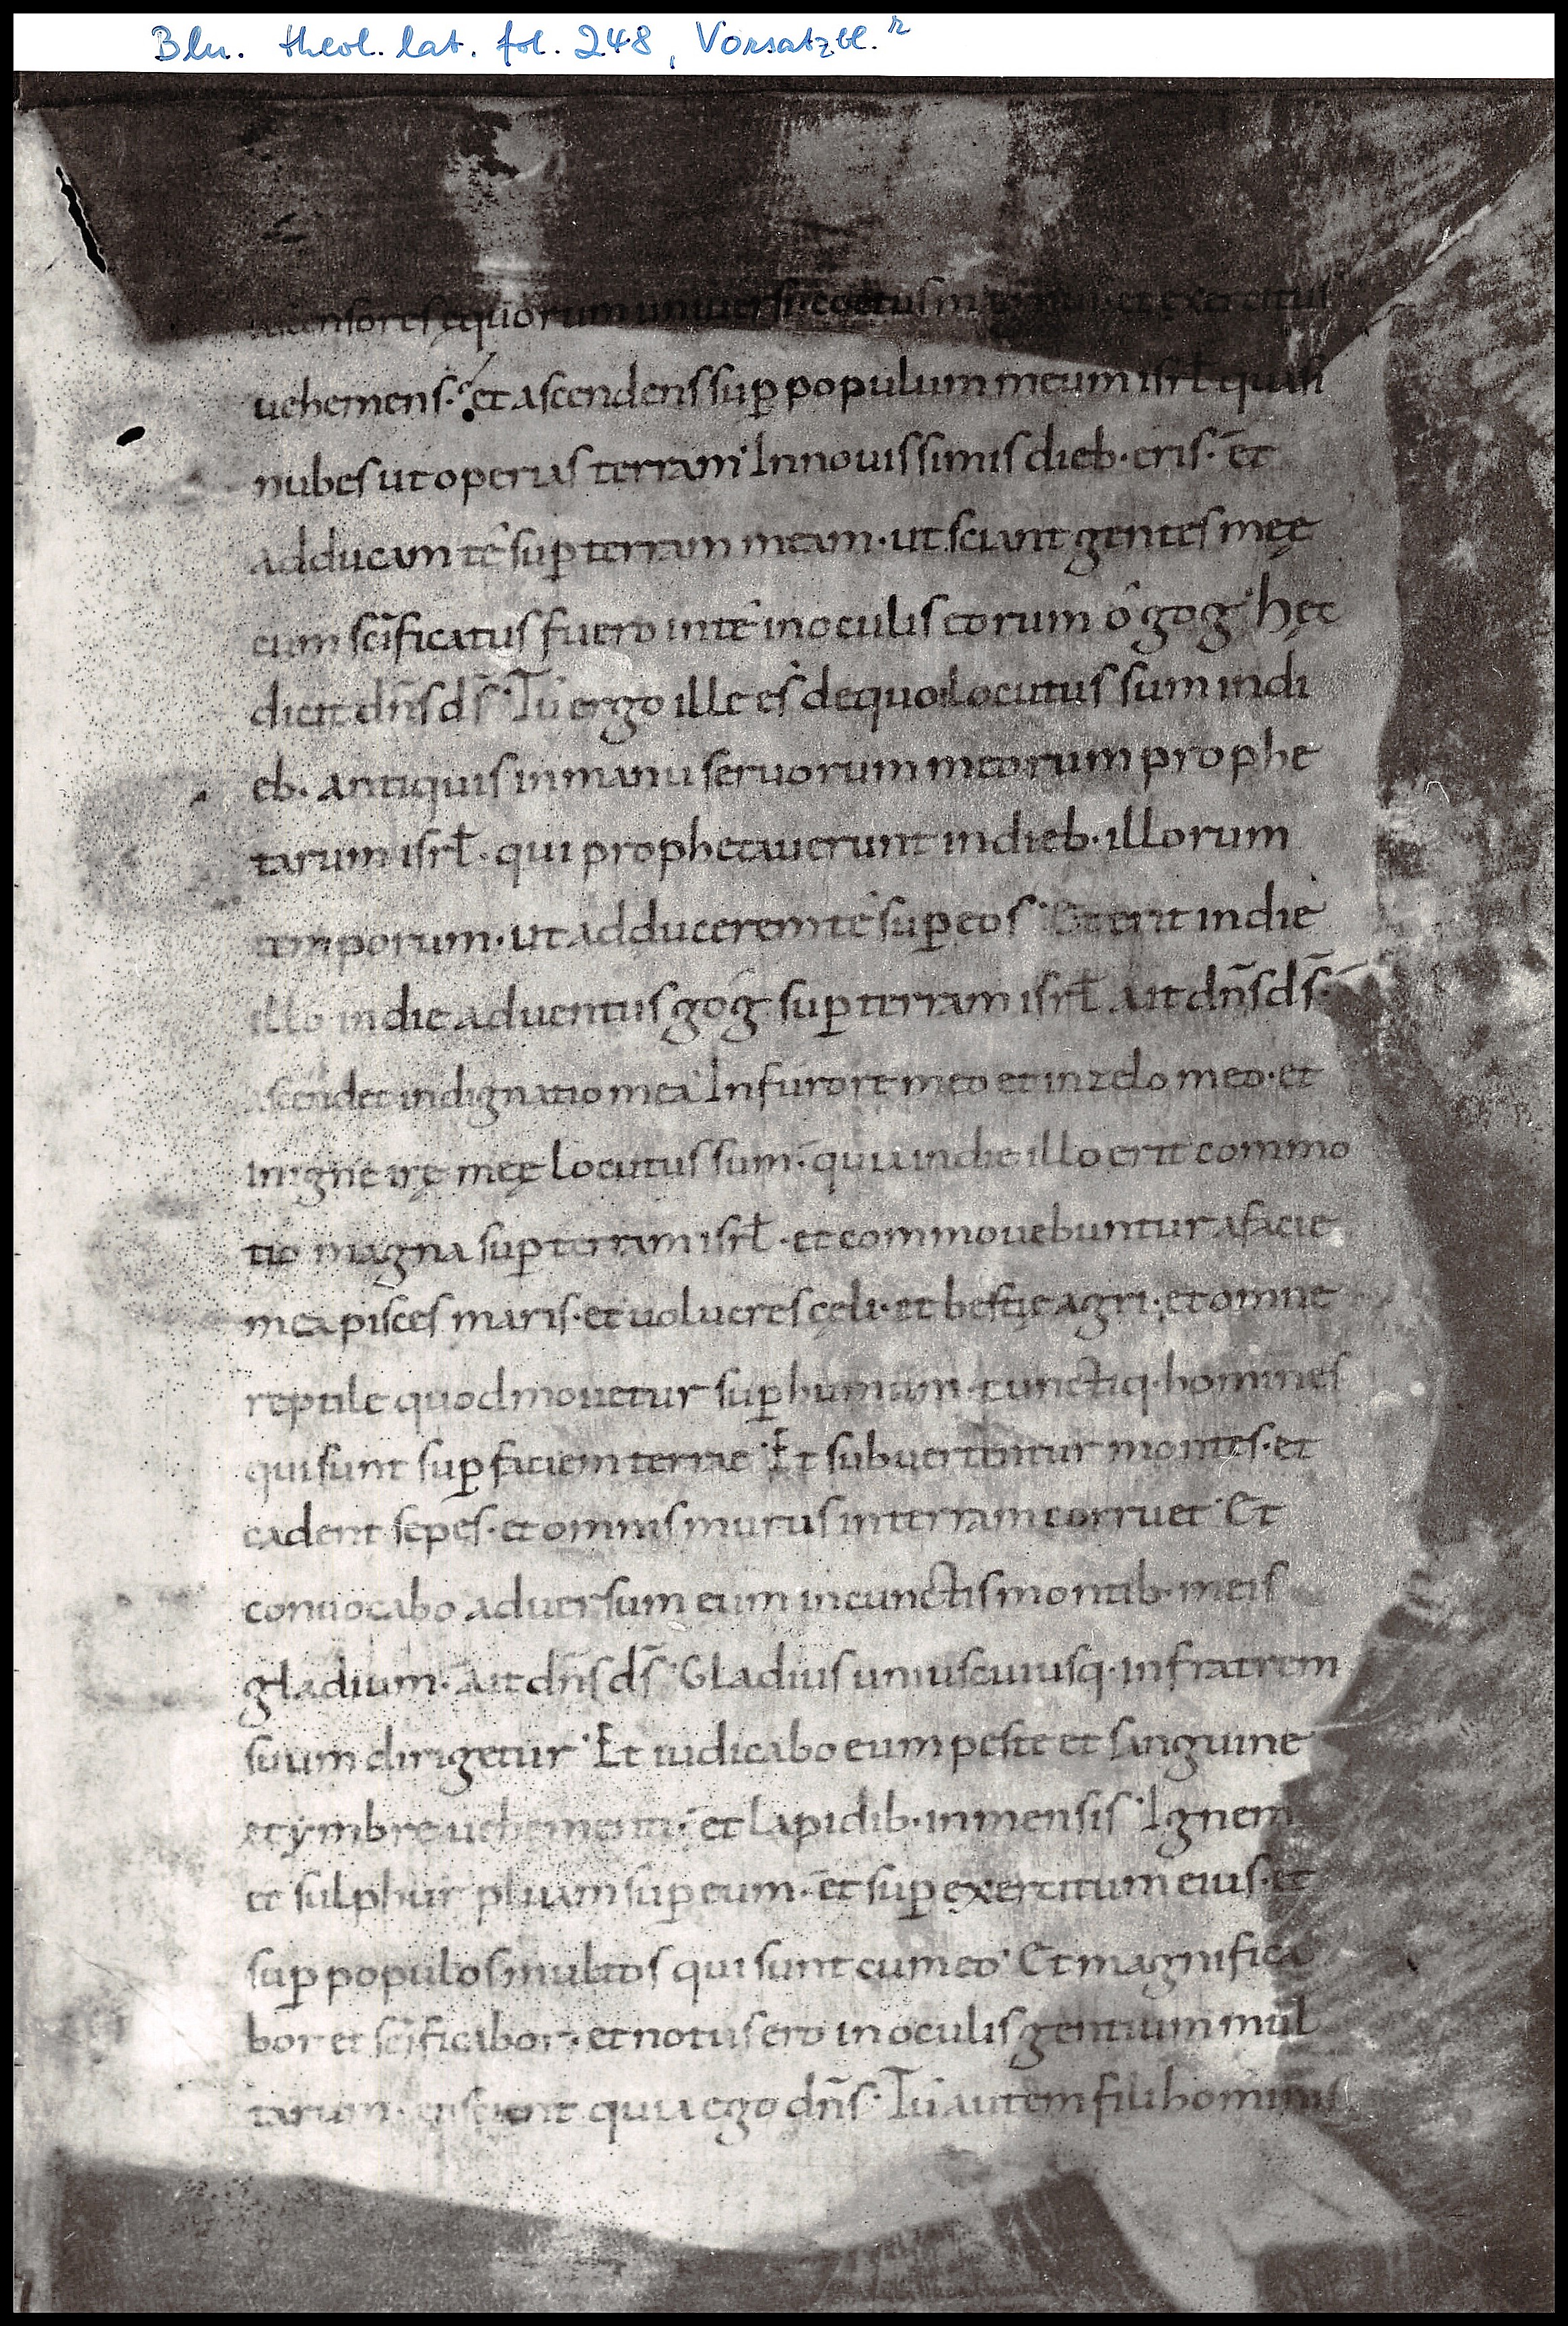 Bln. theol. lat. fol. 248, Vorsatzbl. r
ascensores equorum universi coetus magnus et exercitus
uehemens. et ascendens sup̄ populum meum isrł quasi
nubes ut operias terram. In nouissimis dieb· eris· et
adducam te sup̄ terram meam· ut sciant gentes męę
cum scīficatus fuero in te in oculis eorum o gog. hęc
dicit dn̄s ds̄. Tu ergo ille es de quo locutus sum in di
eb· antiquis in manu seruorum meorum prophe
tarum isrł· qui prophetauerunt in dieb· illorum
temporum· ut adducerem te sup̄ eos. Et erit in die
illo in die aduentus gog sup̄ terram isrł ait dn̄s ds̄·
ascendet indignatio mea. In furore meo et in zelo meo· et
in igne irę męę locutus sum· quia in die illo erit commo
tio magna sup̄ terram isrł· et commouebuntur a facie
mea pisces maris· et uolucres cęli· et bestię agri· et omne
reptile quod mouetur sup̄ humum· cunctiq· homines
qui sunt sup̄ faciem terrae. Et subuertentur montes· et
cadent sepes· et omnis murus in terram corruet. Et
conuocabo aduersum eum in cunctis montib· meis
gladium· ait dn̄s ds̄. Gladius uniuscuiusq· in fratrem
suum dirigetur. Et iudicabo eum peste et sanguine
et ymbre uehementi· et lapidib· inmensis. Ignem
et sulphur pluam sup̄ eum· et sup̄ exercitum eius· et
sup̄ populos multos qui sunt cum eo. Et magnifica
bor et scīficabor· et notus ero in oculis gentium mul
tarum· et scient quia ego dn̄s· Tu autem fili hominis